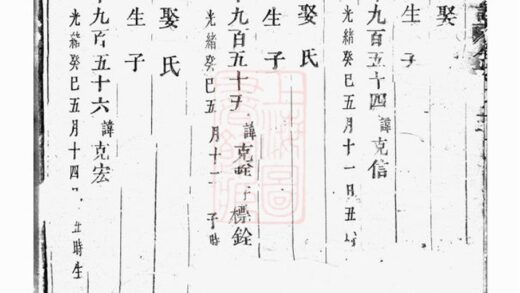 娶
生子
九百五十四 諱克信
光緒癸巳五月十一日丑時
娶氏
生子
九百五十五 諱克 標銓
光緒癸巳五月十 子時
娶氏
生子
九百五十六 諱克宏
光緒癸巳五月十四 時生